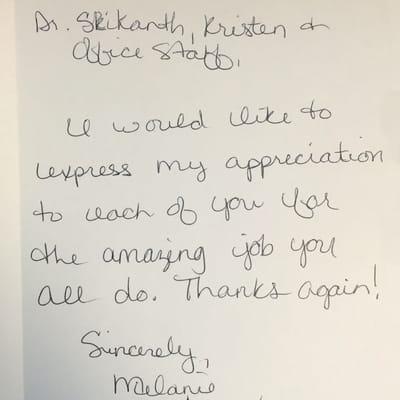 Dr. Srikanth, Kristen &
Office Staff,
I would like to
express my appreciation
to each of you for
the amazing job you
all do. Thanks again!
Sincerely,
Melanie